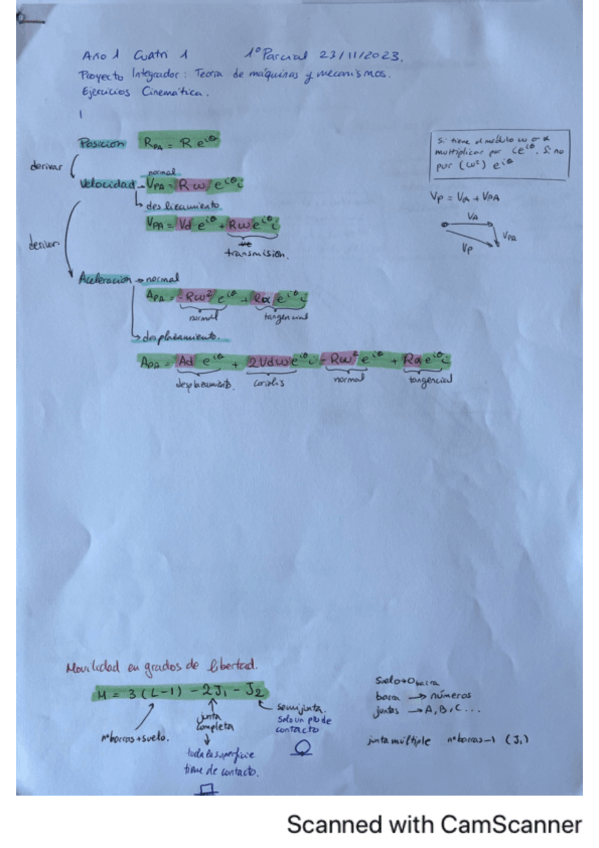 Año 1 Cuatri 1 1º Parcial 23/11/2023.
Proyecto Integrador: Teoria de máquinas y mecanismos.
Ejercicios Cinematica.
1
Posicion R_PA = R e^iθ
derivar
normal
Velocidad → V_PA = R ω e^iθ i
deslizamiento
V_PA = Vd e^iθ + Rω e^iθ i
transmision.
derivar
Aceleración → normal
A_PA = -Rω² e^iθ + Rα e^iθ i
normal tangencial
desplazamiento.
A_PA = Ad e^iθ + 2Vdω e^iθ i - Rω² e^iθ + Rα e^iθ i
desplazamiento coriolis normal tangencial
Si tiene el módulo ω o α
multiplicar por i e^iθ. Si no
pur (ω²) e^iθ
V_P = V_A + V_PA
V_A
V_PA
V_P
Movilidad en grados de libertad.
M = 3 (L-1) - 2J₁ - J₂
nº barras + suelo.
junta
completa
toda la superficie
tiene de contacto.
semijunta.
Solo un pto de
contacto
Suelo → 0 barra
barra → números
juntas → A, B, C ...
junta múltiple nº barras - 1 (J₁)
Scanned with CamScanner